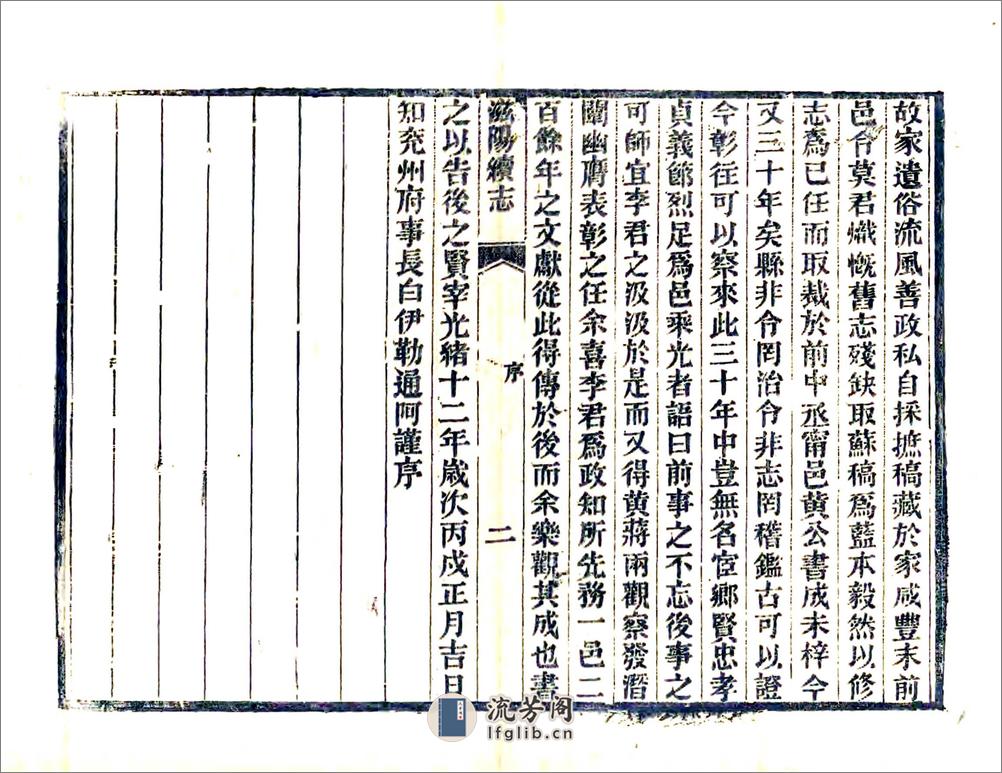 故家遺俗流風善政私自採摭稿藏於家咸豐末前
邑令莫君熾慨舊志殘缺取蘇稿爲藍本毅然以修
志爲已任而取裁於前中丞甯邑黃公書成未梓今
又三十年矣縣非令罔治令非志罔稽鑑古可以證
今彰往可以察來此三十年中豈無名宦鄉賢忠孝
貞義節烈足爲邑乘光者語曰前事之不忘後事之
可師宜李君之汲汲於是而又得黃蔣兩觀察發潛
闡幽膺表彰之任余喜李君爲政知所先務一邑二
百餘年之文獻從此得傳於後而余樂觀其成也書
滋陽續志
序
二
之以告後之賢宰光緒十二年歲次丙戌正月吉日
知兖州府事長白伊勒通阿謹序
流芳阁
lfglib.cn